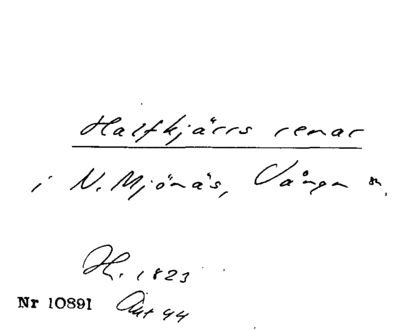 Halfkjärrs renar
i N. Mjönäs, Vånga sn.
H. 1823
Nr 10891 Aut 44